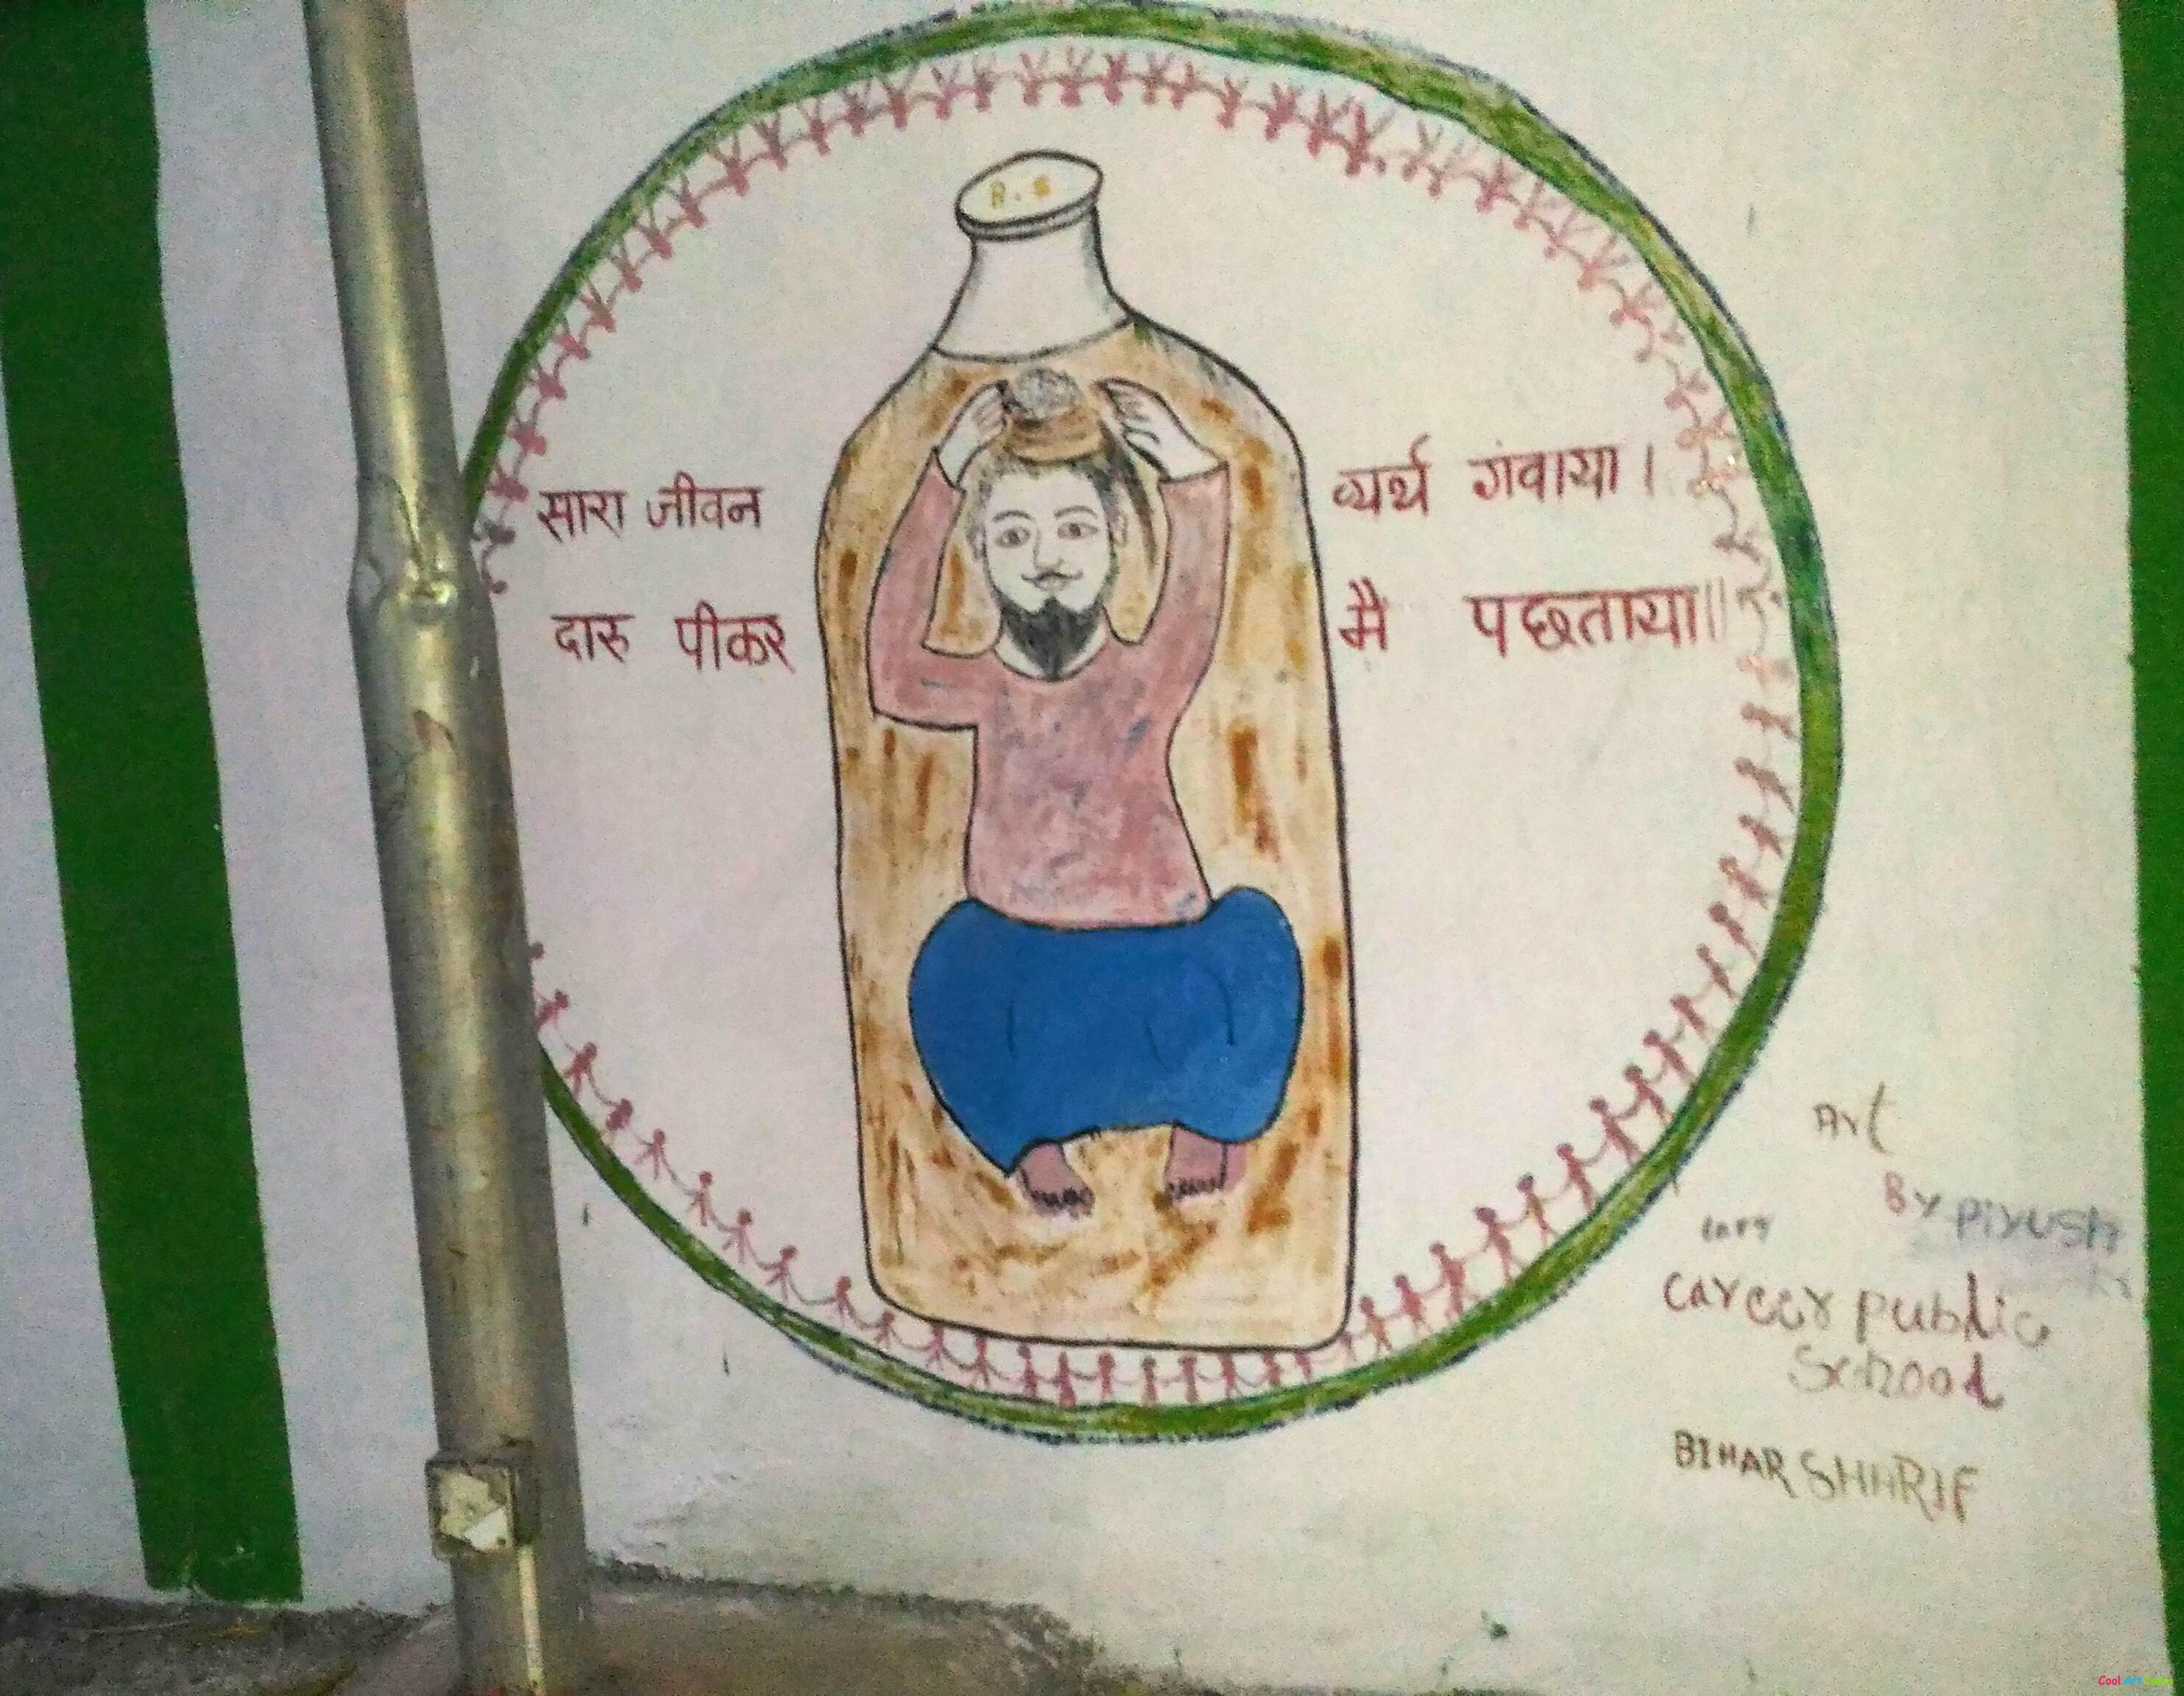 R.S
सारा जीवन व्यर्थ गंवाया।
दारु पीकर मै पछताया॥
Art
By Piyush
Career public
School
BIHAR SHARIF
Cool Art